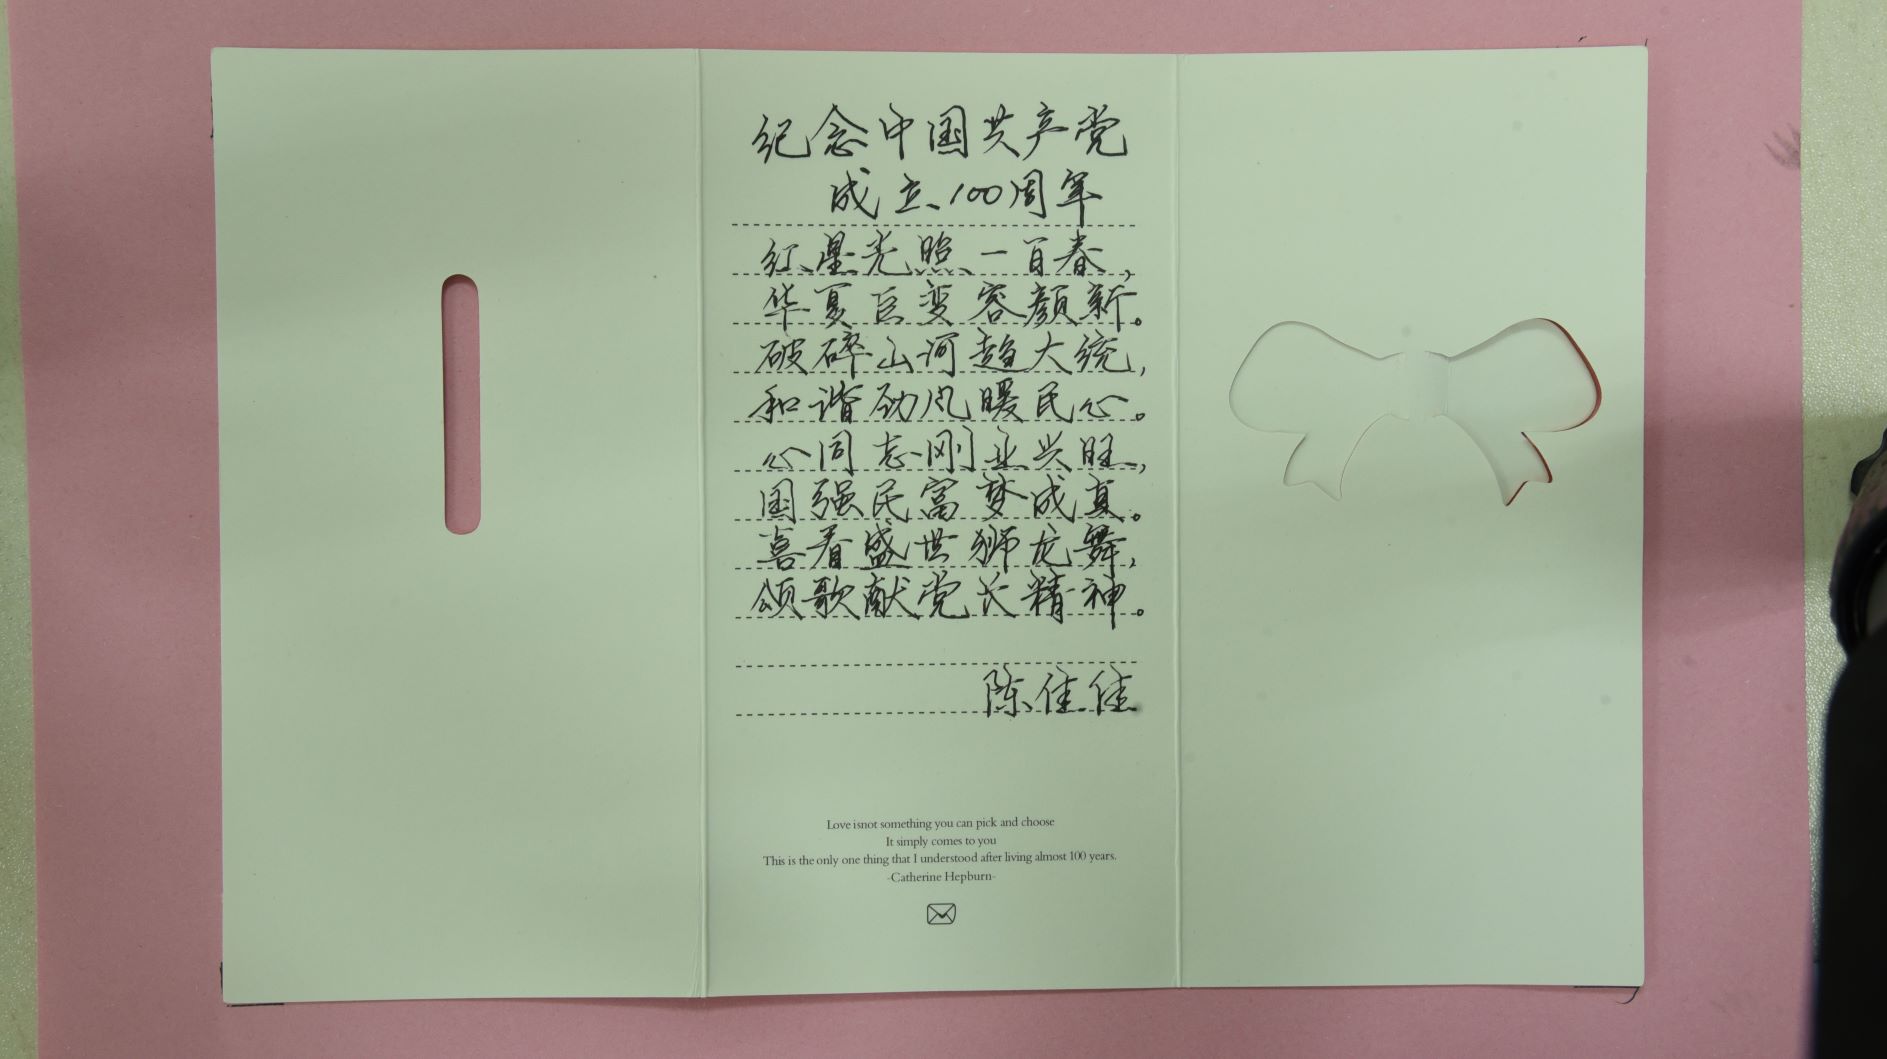 纪念中国共产党
成立100周年
红星光照一百春,
华夏巨变容颜新。
破碎山河趋大统,
和谐劲风暖民心。
心同志刚业兴旺,
国强民富梦成真。
喜看盛世狮龙舞,
颂歌献党长精神。
陈佳佳
Love isnot something you can pick and choose
It simply comes to you
This is the only one thing that I understood after living almost 100 years.
-Catherine Hepburn-